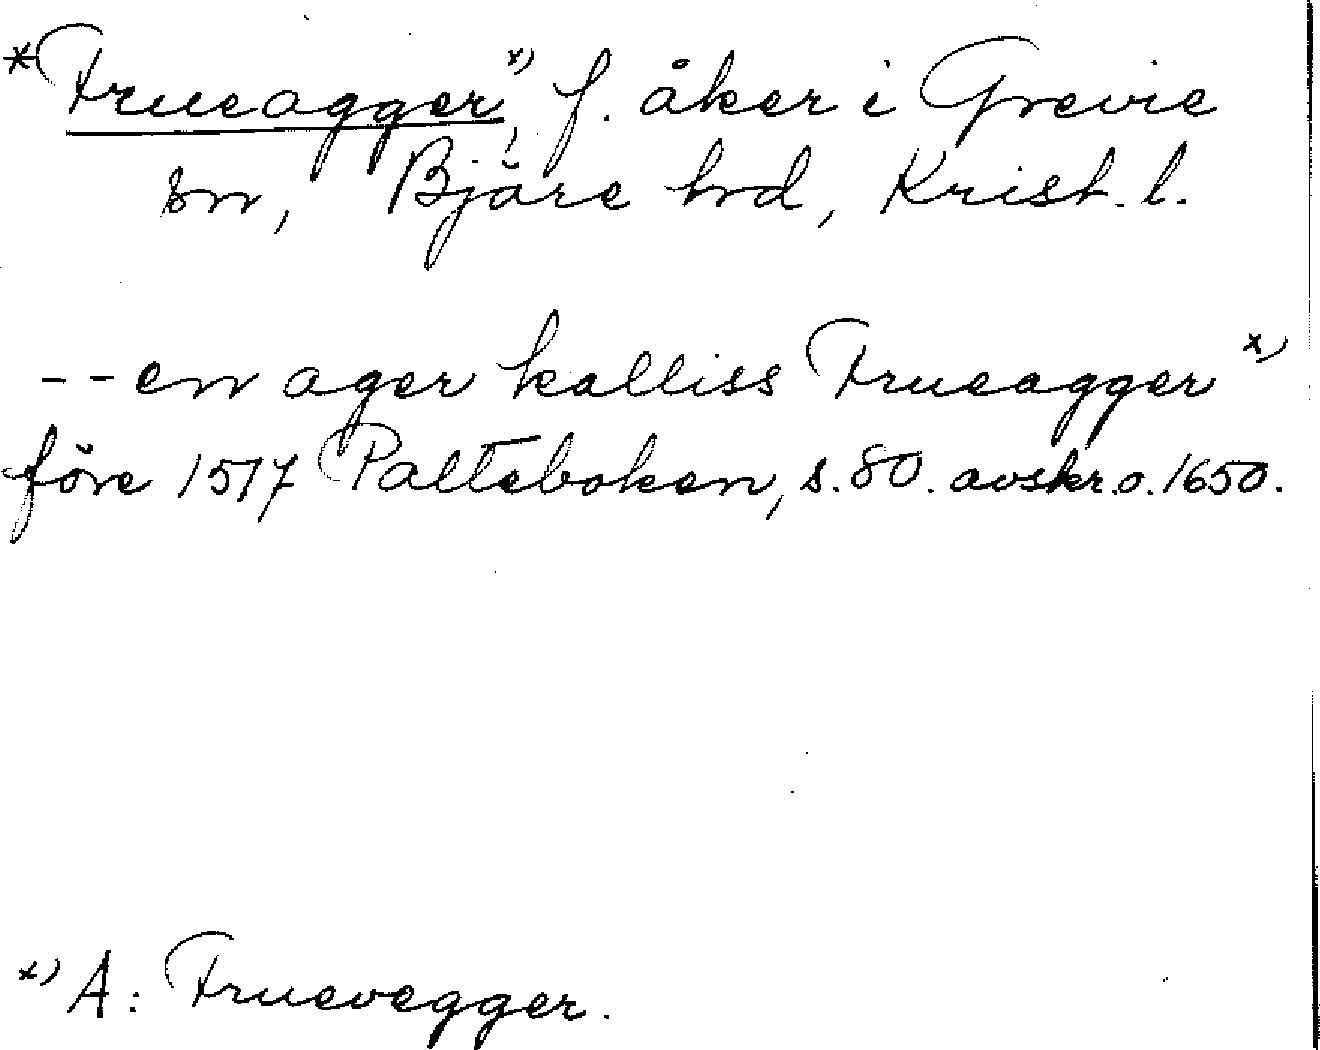 *Frueagger,ˣ⁾ f. åker i Grevie
sn, Bjäre hd, Krist. l.
-- en ager kalliss Frueaggerˣ⁾
före 1517 Palteboken, s. 80. avskr. o. 1650.
ˣ⁾ A: Fruevegger.